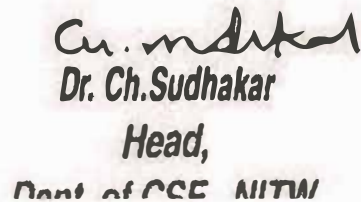 Dr. Ch.Sudhakar
Head,
Dept. of CSE, NITW